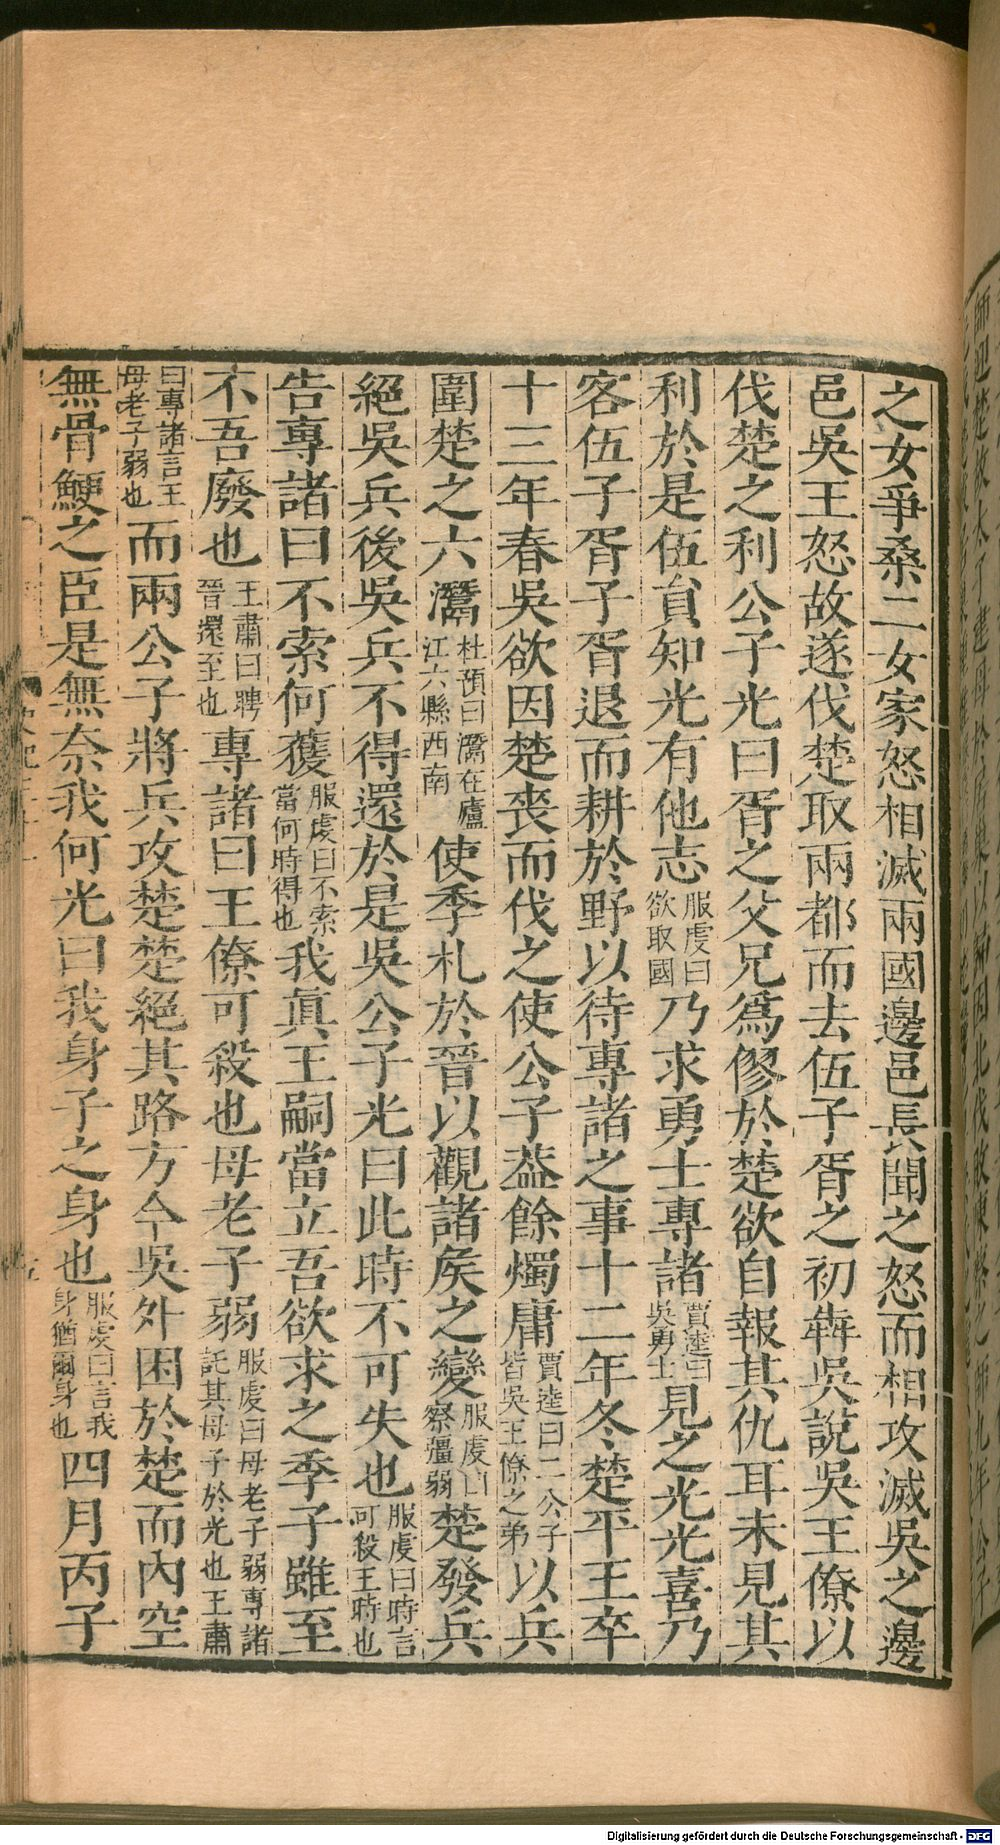 之女爭桑二女家怒相滅兩國邊邑長聞之怒而相攻滅吳之邊
邑吳王怒故遂伐楚取兩都而去伍子胥之初犇吳說吳王僚以
伐楚之利公子光曰胥之父兄爲僇於楚欲自報其仇耳未見其
利於是伍員知光有他志服虔曰欲取國乃求勇士專諸賈逵曰吳勇士見之光光喜乃
客伍子胥子胥退而耕於野以待專諸之事十二年冬楚平王卒
十三年春吳欲因楚喪而伐之使公子蓋餘燭庸賈逵曰二公子皆吳王僚之弟以兵
圍楚之六灊杜預曰灊在廬江六縣西南使季札於晉以觀諸矦之變服虔曰察彊弱楚發兵
絕吳兵後吳兵不得還於是吳公子光曰此時不可失也服虔曰時言可殺王時也
告專諸曰不索何獲服虔曰不索當何時得也我眞王嗣當立吾欲求之季子雖至
不吾廢也王肅曰聘晉還至也專諸曰王僚可殺也母老子弱服虔曰母老子弱專諸託其母子於光也王肅
曰專諸言王母老子弱也而兩公子將兵攻楚楚絕其路方今吳外困於楚而內空
無骨鯁之臣是無奈我何光曰我身子之身也服虔曰言我身猶爾身也四月丙子
Digitalisierung gefördert durch die Deutsche Forschungsgemeinschaft - DFG